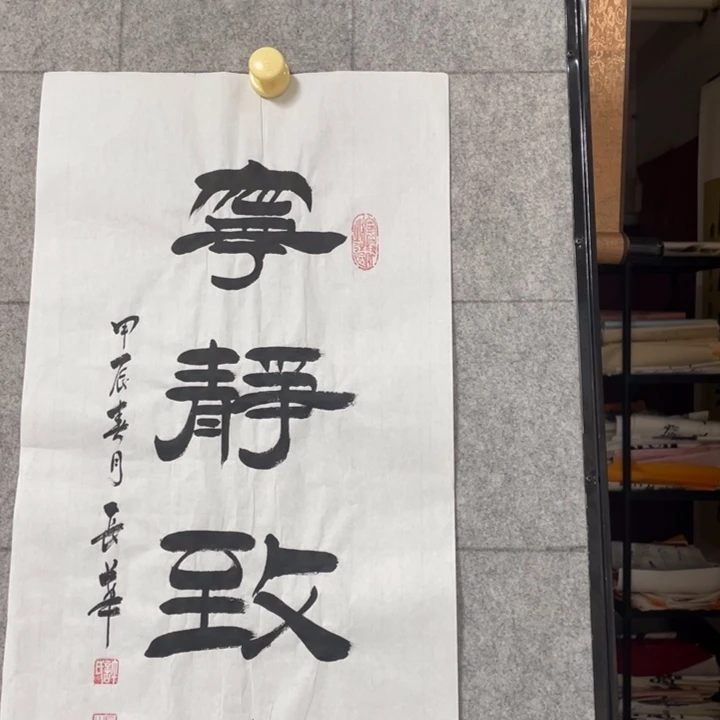 寧靜致
甲辰春月 長華